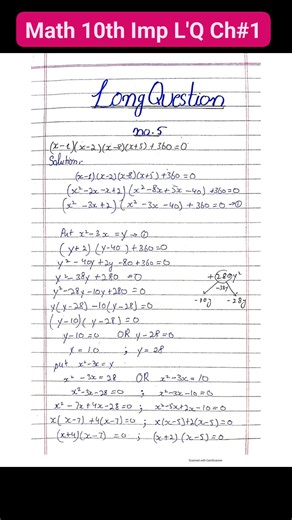 Math 10th Imp L'Q Ch#1
Long Question
no.5
(x-1)(x-2)(x-8)(x+5)+360=0
Solution:-
(x-1)(x-2)(x-8)(x+5)+360=0
(x²-2x-x+2)(x²-8x+5x-40)+360=0
(x²-3x+2)(x²-3x-40)+360=0→①
Put x²-3x=y→①
(y+2)(y-40)+360=0
y²-40y+2y-80+360=0
y²-38y+280=0
+280y²
-38y
-10y -28y
y²-28y-10y+280=0
y(y-28)-10(y-28)=0
(y-10)(y-28)=0
y-10=0 OR y-28=0
y=10 ; y=28
put x²-3x=y
x²-3x=28 OR x²-3x=10
x²-3x-28=0 ; x²-3x-10=0
x²-7x+4x-28=0 ; x²-5x+2x-10=0
x(x-7)+4(x-7)=0 ; x(x-5)+2(x-5)=0
(x+4)(x-7)=0 ; (x+2)(x-5)=0
Scanned with CamScanner